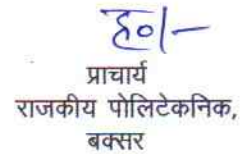 ह०/-
प्राचार्य
राजकीय पोलिटेकनिक,
बक्सर